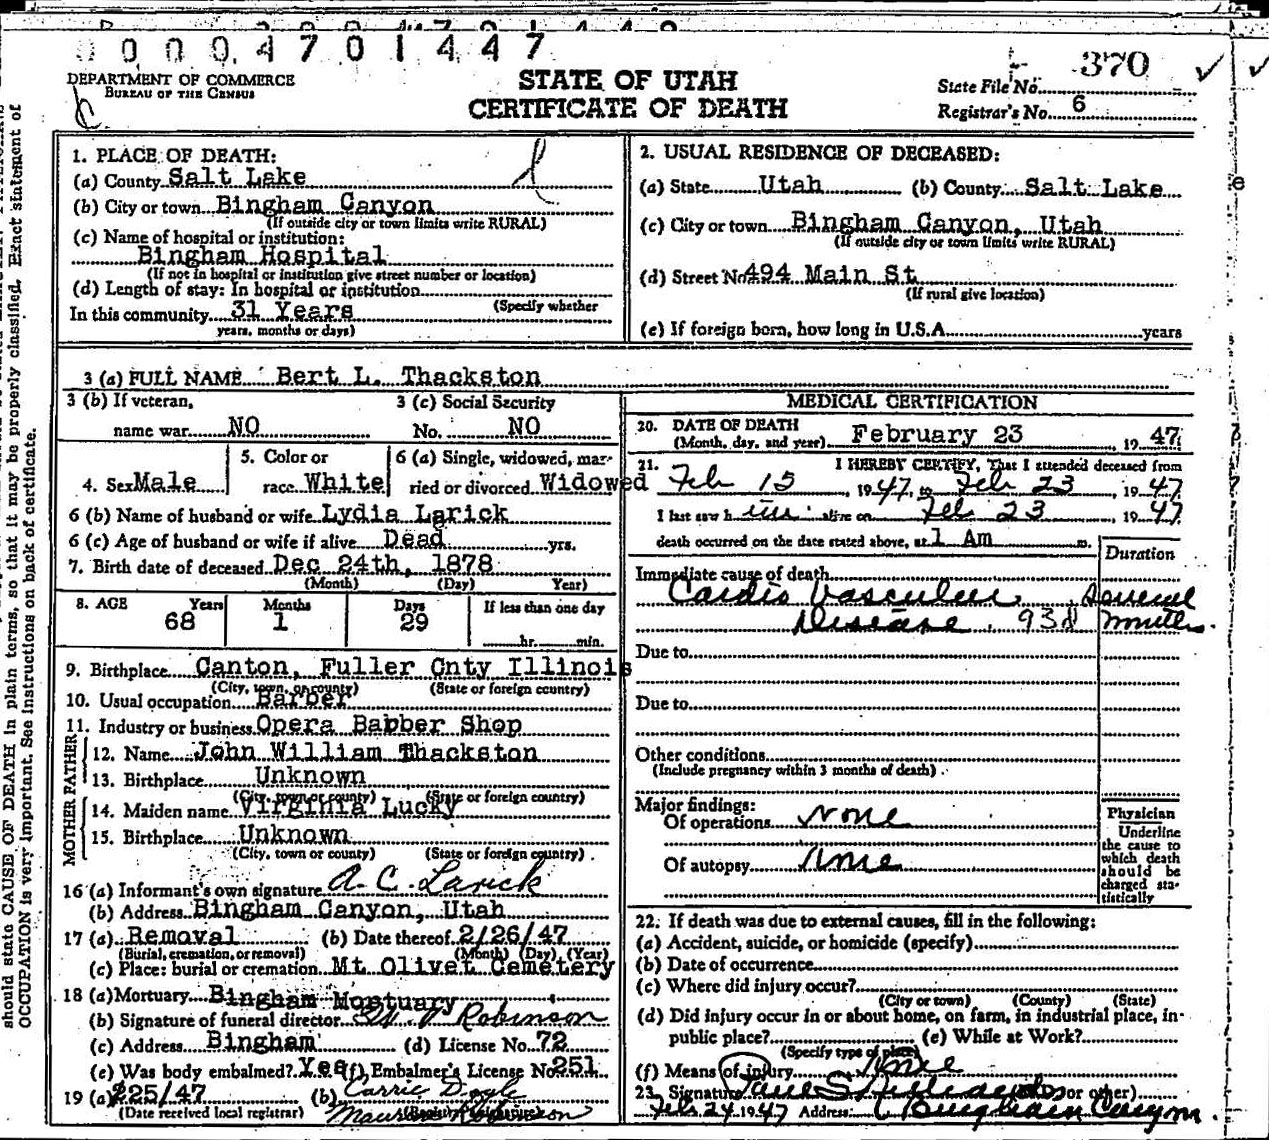 0 0 0 4 7 0 1 4 4 7
DEPARTMENT OF COMMERCE
BUREAU OF THE CENSUS
STATE OF UTAH
CERTIFICATE OF DEATH
State File No. 370
Registrar's No. 6
1. PLACE OF DEATH:
(a) County Salt Lake
(b) City or town Bingham Canyon
(If outside city or town limits write RURAL)
(c) Name of hospital or institution:
Bingham Hospital
(If not in hospital or institution give street number or location)
(d) Length of stay: In hospital or institution
(Specify whether
In this community 31 Years
years, months or days)
2. USUAL RESIDENCE OF DECEASED:
(a) State Utah (b) County Salt Lake
(c) City or town Bingham Canyon, Utah
(If outside city or town limits write RURAL)
(d) Street No 494 Main St
(If rural give location)
(e) If foreign born, how long in U.S.A. years
3 (a) FULL NAME Bert L. Thackston
3 (b) If veteran,
name war NO
3 (c) Social Security
No. NO
4. Sex Male
5. Color or
race White
6 (a) Single, widowed, mar-
ried or divorced Widowed
6 (b) Name of husband or wife Lydia Larick
6 (c) Age of husband or wife if alive Dead yrs.
7. Birth date of deceased Dec 24th, 1878
(Month) (Day) Year)
8. AGE Years Months Days If less than one day
68 1 29 hr. min.
9. Birthplace Canton, Fuller Cnty Illinois
(City, town, or county) (State or foreign country)
10. Usual occupation Barber
11. Industry or business Opera Babber Shop
FATHER
12. Name John William Thackston
13. Birthplace Unknown
(City, town or county) (State or foreign country)
MOTHER
14. Maiden name Virginia Lucky
15. Birthplace Unknown
(City, town or county) (State or foreign country)
16 (a) Informant's own signature A. C. Larick
(b) Address Bingham Canyon, Utah
17 (a) Removal (b) Date thereof 2/26/47
(Burial, cremation, or removal) (Month) (Day) (Year)
(c) Place: burial or cremation Mt Olivet Cemetery
18 (a) Mortuary Bingham Mortuary
(b) Signature of funeral director Robinson
(c) Address Bingham (d) License No. 72
(e) Was body embalmed? Yes (f) Embalmer's License No. 251
19 (a) 225/47 (b) Carrie Dogle
(Date received local registrar)
Robinson
MEDICAL CERTIFICATION
20. DATE OF DEATH
(Month, day, and year) February 23, 1947
21. I HEREBY CERTIFY, That I attended deceased from
Feb 15, 1947, to Feb 23, 1947
I last saw him alive on Feb 23, 1947
death occurred on the date stated above, at 1 Am m.
Duration
Immediate cause of death
Cardio Vascular Several
Disease. 93d months.
Due to
Due to
Other conditions
(Include pregnancy within 3 months of death)
Major findings:
Of operations None
Of autopsy None
Physician
Underline
the cause to
which death
should be
charged sta-
tistically
22. If death was due to external causes, fill in the following:
(a) Accident, suicide, or homicide (specify)
(b) Date of occurrence
(c) Where did injury occur?
(City or town) (County) (State)
(d) Did injury occur in or about home, on farm, in industrial place, in-
public place? (e) While at Work?
(Specify type of place)
(f) Means of injury None
23. Signature Paul S. or other)
Feb 24 1947 Address: Bingham Canyon.
should state CAUSE OF DEATH in plain terms, so that it may be properly classified. Exact statement of
OCCUPATION is very important. See instructions on back of certificate.